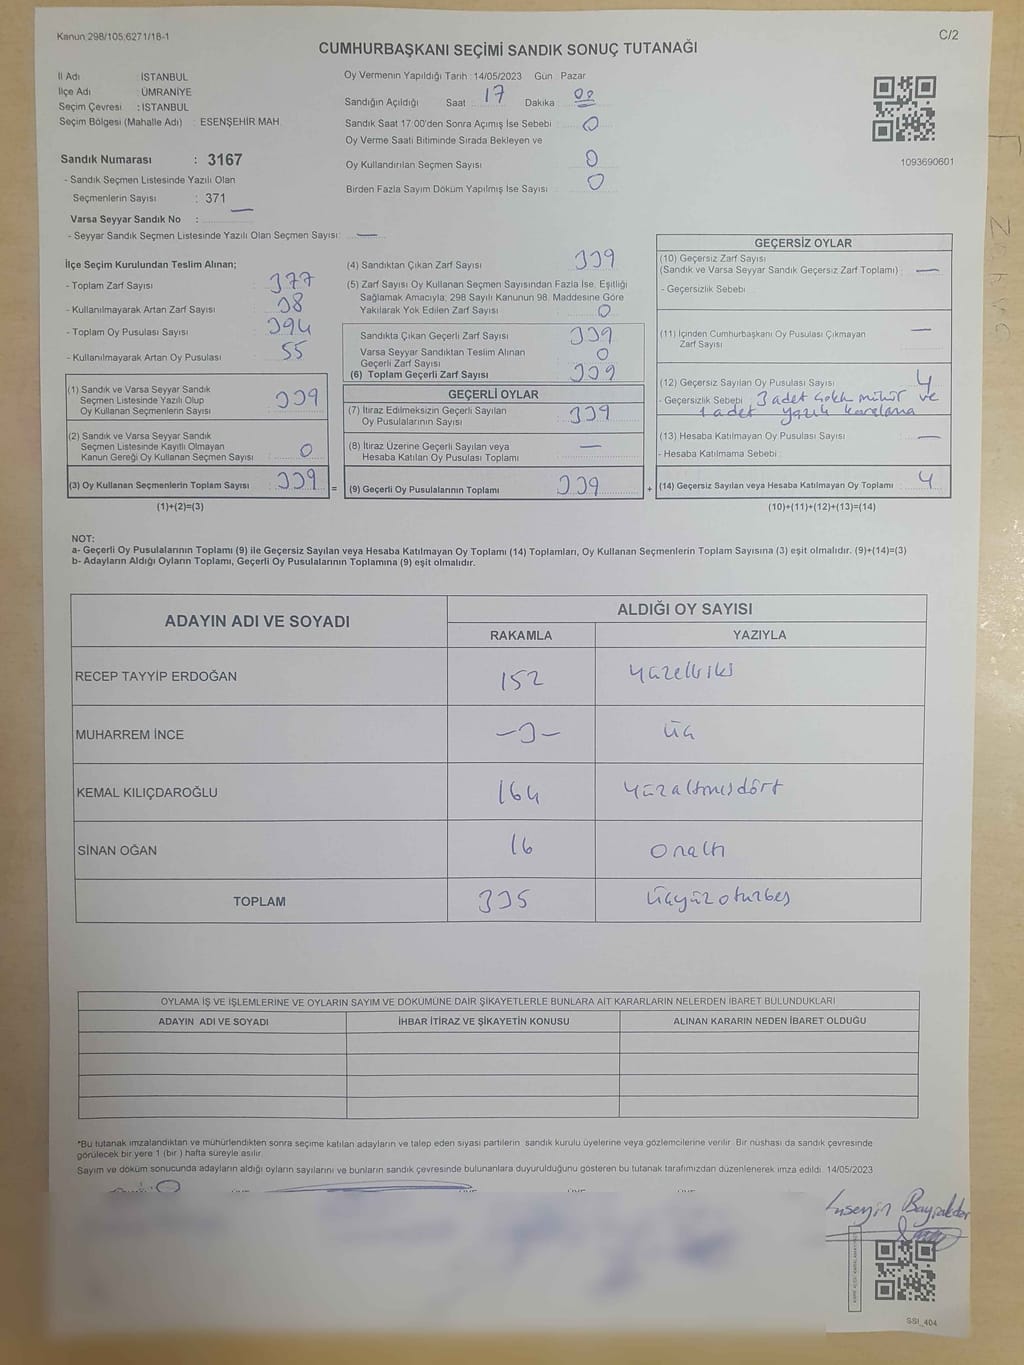 Kanun:298/105,6271/18-1
C/2
CUMHURBAŞKANI SEÇİMİ SANDIK SONUÇ TUTANAĞI
İl Adı : İSTANBUL
İlçe Adı : ÜMRANİYE
Seçim Çevresi : İSTANBUL
Seçim Bölgesi (Mahalle Adı) : ESENŞEHİR MAH.
Sandık Numarası : 3167
- Sandık Seçmen Listesinde Yazılı Olan
Seçmenlerin Sayısı : 371
Varsa Seyyar Sandık No : —
- Seyyar Sandık Seçmen Listesinde Yazılı Olan Seçmen Sayısı: —
Oy Vermenin Yapıldığı Tarih :14/05/2023 Gün : Pazar
Sandığın Açıldığı Saat 17 Dakika 00
Sandık Saat 17:00'den Sonra Açımış İse Sebebi : 0
Oy Verme Saati Bitiminde Sırada Bekleyen ve
Oy Kullandırılan Seçmen Sayısı : 0
Birden Fazla Sayım Döküm Yapılmış İse Sayısı : 0
1093690601
İlçe Seçim Kurulundan Teslim Alınan;
- Toplam Zarf Sayısı : 377
- Kullanılmayarak Artan Zarf Sayısı : 38
- Toplam Oy Pusulası Sayısı : 394
- Kullanılmayarak Artan Oy Pusulası : 55
(1) Sandık ve Varsa Seyyar Sandık
Seçmen Listesinde Yazılı Olup
Oy Kullanan Seçmenlerin Sayısı : 339
(2) Sandık ve Varsa Seyyar Sandık
Seçmen Listesinde Kayıtlı Olmayan
Kanun Gereği Oy Kullanan Seçmen Sayısı : 0
(3) Oy Kullanan Seçmenlerin Toplam Sayısı : 339
(1)+(2)=(3)
=
(4) Sandıktan Çıkan Zarf Sayısı : 339
(5) Zarf Sayısı Oy Kullanan Seçmen Sayısından Fazla İse, Eşitliği
Sağlamak Amacıyla, 298 Sayılı Kanunun 98. Maddesine Göre
Yakılarak Yok Edilen Zarf Sayısı : 0
Sandıkta Çıkan Geçerli Zarf Sayısı : 339
Varsa Seyyar Sandıktan Teslim Alınan
Geçerli Zarf Sayısı : 0
(6) Toplam Geçerli Zarf Sayısı : 339
GEÇERLİ OYLAR
(7) İtiraz Edilmeksizin Geçerli Sayılan
Oy Pusulalarının Sayısı : 339
(8) İtiraz Üzerine Geçerli Sayılan veya
Hesaba Katılan Oy Pusulası Toplamı : —
(9) Geçerli Oy Pusulalarının Toplamı : 339
+
GEÇERSİZ OYLAR
(10) Geçersiz Zarf Sayısı
(Sandık ve Varsa Seyyar Sandık Geçersiz Zarf Toplamı) : —
- Geçersizlik Sebebi :
(11) İçinden Cumhurbaşkanı Oy Pusulası Çıkmayan
Zarf Sayısı : —
(12) Geçersiz Sayılan Oy Pusulası Sayısı : 4
- Geçersizlik Sebebi : 3 adet çoklu mühür ve
1 adet yazılı karalama
(13) Hesaba Katılmayan Oy Pusulası Sayısı : —
- Hesaba Katılmama Sebebi :
(14) Geçersiz Sayılan veya Hesaba Katılmayan Oy Toplamı : 4
(10)+(11)+(12)+(13)=(14)
NOT:
a- Geçerli Oy Pusulalarının Toplamı (9) ile Geçersiz Sayılan veya Hesaba Katılmayan Oy Toplamı (14) Toplamları, Oy Kullanan Seçmenlerin Toplam Sayısına (3) eşit olmalıdır. (9)+(14)=(3)
b- Adayların Aldığı Oyların Toplamı, Geçerli Oy Pusulalarının Toplamına (9) eşit olmalıdır.
ADAYIN ADI VE SOYADI
ALDIĞI OY SAYISI
RAKAMLA YAZIYLA
RECEP TAYYİP ERDOĞAN 152 yüzelliiki
MUHARREM İNCE —3— üç
KEMAL KILIÇDAROĞLU 164 yüzaltmışdört
SİNAN OĞAN 16 Onaltı
TOPLAM 335 üçyüzoturbeş
OYLAMA İŞ VE İŞLEMLERİNE VE OYLARIN SAYIM VE DÖKÜMÜNE DAİR ŞİKAYETLERLE BUNLARA AİT KARARLARIN NELERDEN İBARET BULUNDUKLARI
ADAYIN ADI VE SOYADI İHBAR İTİRAZ VE ŞİKAYETİN KONUSU ALINAN KARARIN NEDEN İBARET OLDUĞU
*Bu tutanak imzalandıktan ve mühürlendikten sonra seçime katılan adayların ve talep eden siyasi partilerin sandık kurulu üyelerine veya gözlemcilerine verilir. Bir nüshası da sandık çevresinde
görülecek bir yere 1 (bir ) hafta süreyle asılır.
Sayım ve döküm sonucunda adayların aldığı oyların sayılarını ve bunların sandık çevresinde bulunanlara duyurulduğunu gösteren bu tutanak tarafımızdan düzenlenerek imza edildi. 14/05/2023
Hüseyin Bayraktar
SSI_404